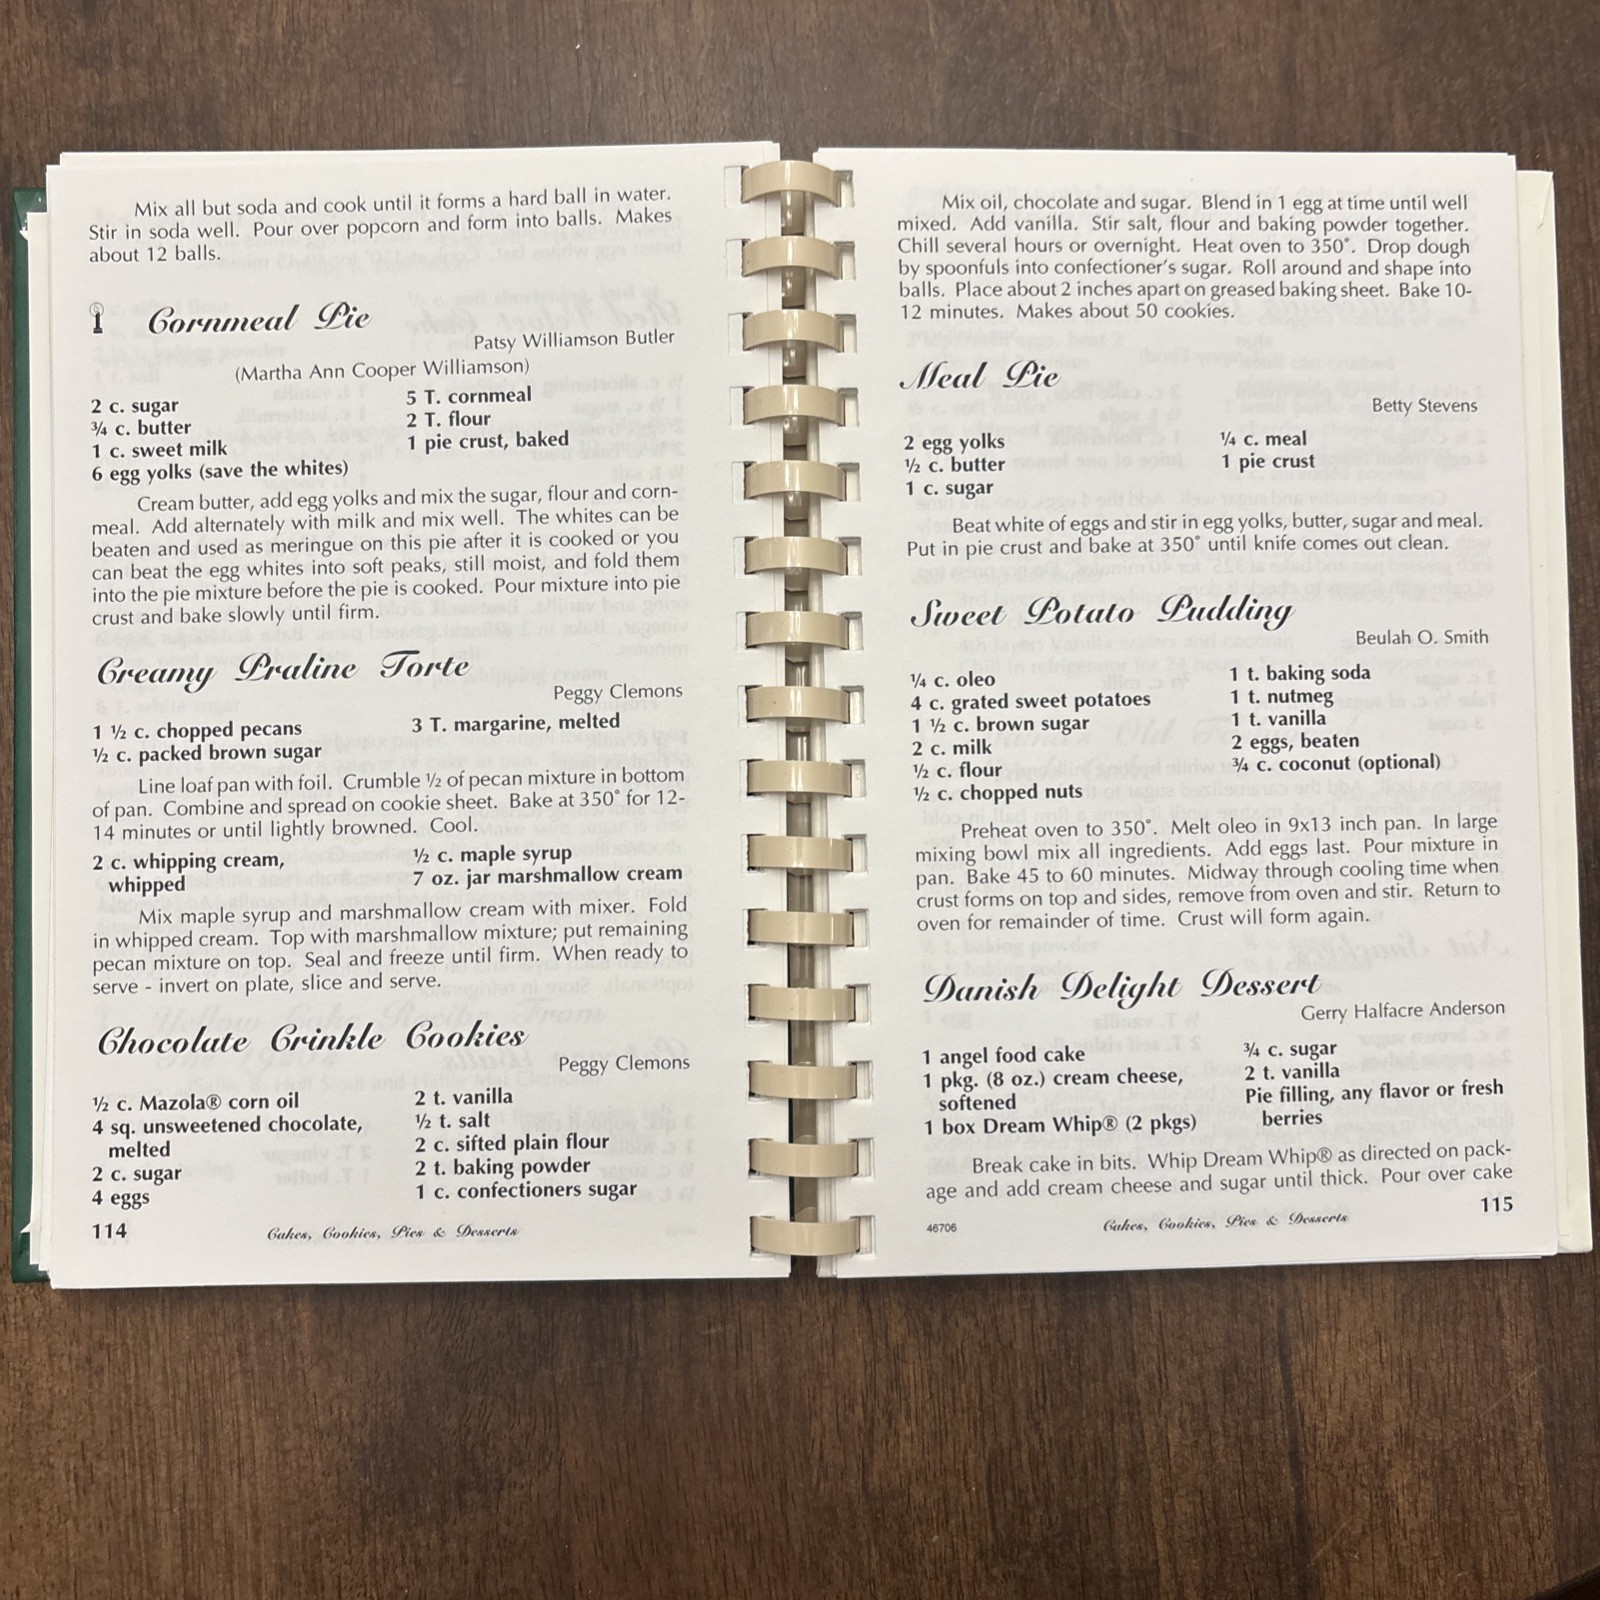 Mix all but soda and cook until it forms a hard ball in water.
Stir in soda well. Pour over popcorn and form into balls. Makes
about 12 balls.
Cornmeal Pie
Patsy Williamson Butler
(Martha Ann Cooper Williamson)
2 c. sugar
¾ c. butter
1 c. sweet milk
6 egg yolks (save the whites)
5 T. cornmeal
2 T. flour
1 pie crust, baked
Cream butter, add egg yolks and mix the sugar, flour and corn-
meal. Add alternately with milk and mix well. The whites can be
beaten and used as meringue on this pie after it is cooked or you
can beat the egg whites into soft peaks, still moist, and fold them
into the pie mixture before the pie is cooked. Pour mixture into pie
crust and bake slowly until firm.
Creamy Praline Torte
Peggy Clemons
1 ½ c. chopped pecans
½ c. packed brown sugar
3 T. margarine, melted
Line loaf pan with foil. Crumble ½ of pecan mixture in bottom
of pan. Combine and spread on cookie sheet. Bake at 350° for 12-
14 minutes or until lightly browned. Cool.
2 c. whipping cream,
whipped
½ c. maple syrup
7 oz. jar marshmallow cream
Mix maple syrup and marshmallow cream with mixer. Fold
in whipped cream. Top with marshmallow mixture; put remaining
pecan mixture on top. Seal and freeze until firm. When ready to
serve - invert on plate, slice and serve.
Chocolate Crinkle Cookies
Peggy Clemons
½ c. Mazola® corn oil
4 sq. unsweetened chocolate,
melted
2 c. sugar
4 eggs
2 t. vanilla
½ t. salt
2 c. sifted plain flour
2 t. baking powder
1 c. confectioners sugar
114
Cakes, Cookies, Pies & Desserts
Mix oil, chocolate and sugar. Blend in 1 egg at time until well
mixed. Add vanilla. Stir salt, flour and baking powder together.
Chill several hours or overnight. Heat oven to 350°. Drop dough
by spoonfuls into confectioner's sugar. Roll around and shape into
balls. Place about 2 inches apart on greased baking sheet. Bake 10-
12 minutes. Makes about 50 cookies.
Meal Pie
Betty Stevens
2 egg yolks
½ c. butter
1 c. sugar
¼ c. meal
1 pie crust
Beat white of eggs and stir in egg yolks, butter, sugar and meal.
Put in pie crust and bake at 350° until knife comes out clean.
Sweet Potato Pudding
Beulah O. Smith
¼ c. oleo
4 c. grated sweet potatoes
1 ½ c. brown sugar
2 c. milk
½ c. flour
½ c. chopped nuts
1 t. baking soda
1 t. nutmeg
1 t. vanilla
2 eggs, beaten
¾ c. coconut (optional)
Preheat oven to 350°. Melt oleo in 9x13 inch pan. In large
mixing bowl mix all ingredients. Add eggs last. Pour mixture in
pan. Bake 45 to 60 minutes. Midway through cooling time when
crust forms on top and sides, remove from oven and stir. Return to
oven for remainder of time. Crust will form again.
Danish Delight Dessert
Gerry Halfacre Anderson
1 angel food cake
1 pkg. (8 oz.) cream cheese,
softened
1 box Dream Whip® (2 pkgs)
¾ c. sugar
2 t. vanilla
Pie filling, any flavor or fresh
berries
Break cake in bits. Whip Dream Whip® as directed on pack-
age and add cream cheese and sugar until thick. Pour over cake
46706
Cakes, Cookies, Pies & Desserts
115